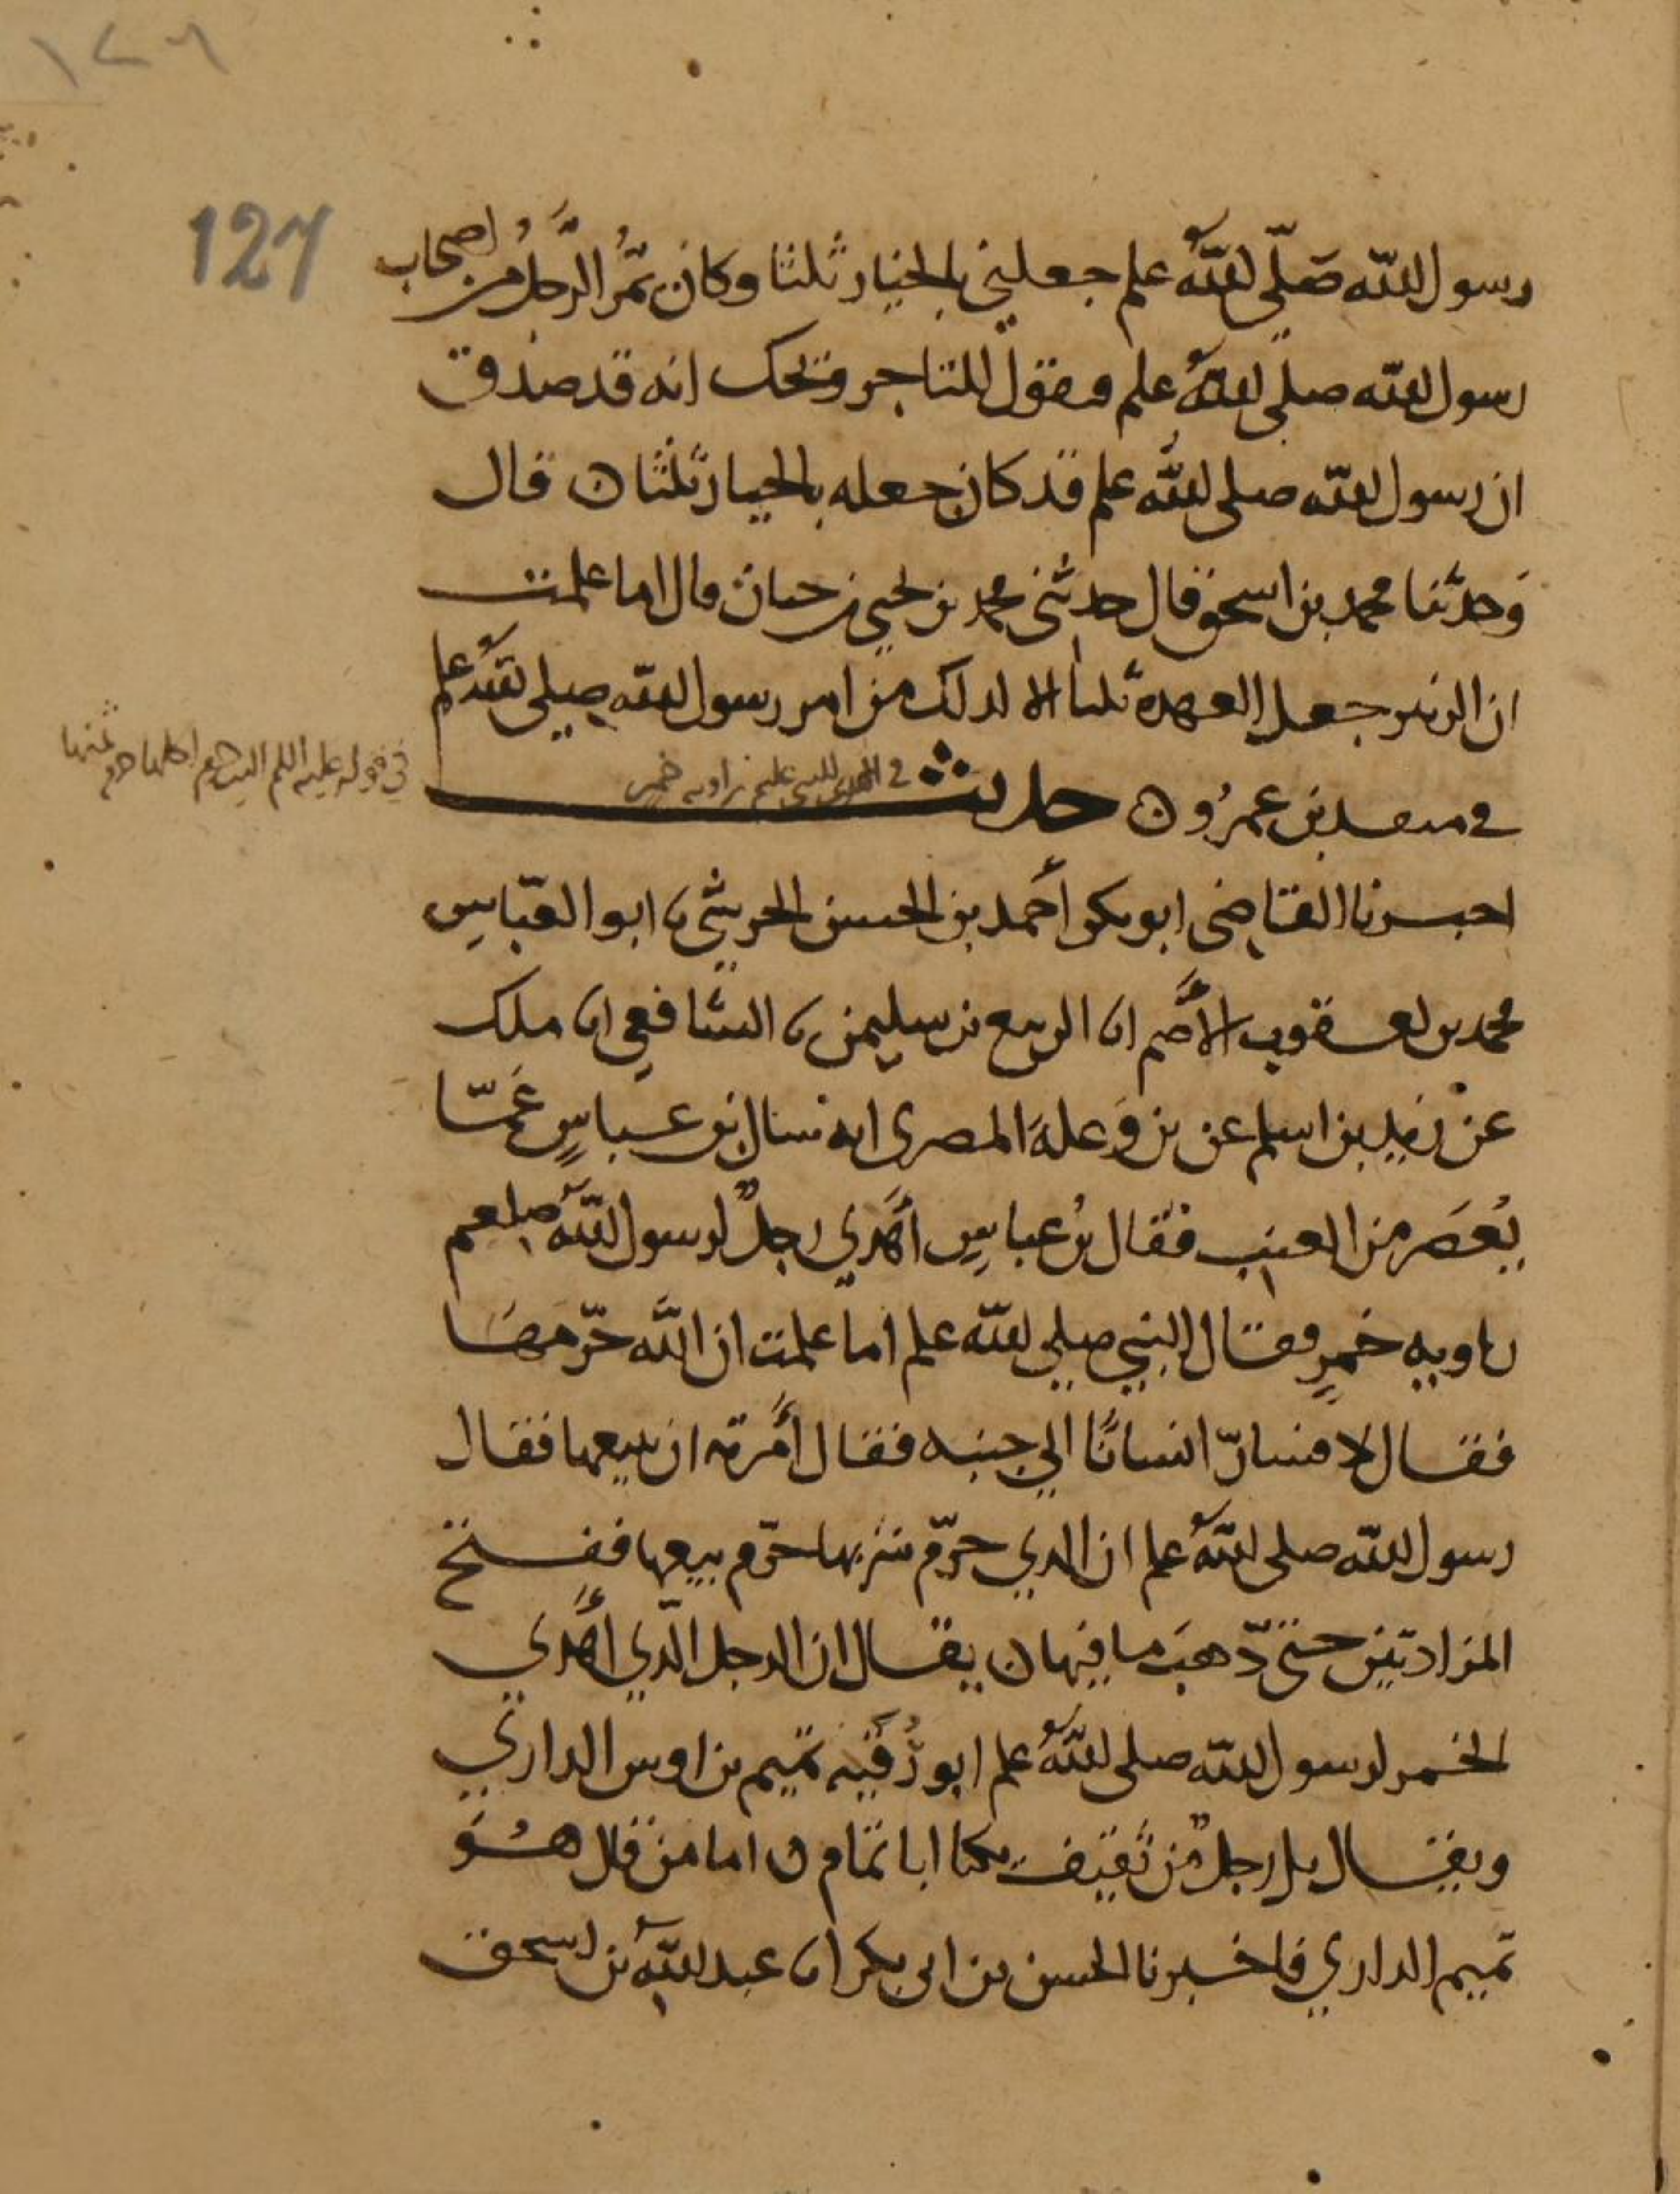 ١٢٦
127
رسول الله صَلّى الله علم جعليني بالخيار ثلثا وكان يمُرّ الرَّجُل من اصحاب
رسول الله صلى الله علم فيقول للتاجر ويحك انه قد صدق
ان رسول الله صلى الله علم قد كان جعله بالخيار ثلثا ن قال
وَحدثنا محمد بن اسحق قال حدثني محمد بن يحيى بن حبان قال اما علمت
ان الزبير جعل العهدة ثلثا الا لذلك من امر رسول الله صلى الله علم
في منقذ بن عمرو ن حديث في المهدي للنبي علم راويه خمر
في قوله عليه اللم الذي حرم اكلها حرم ثمنها
اخبرنا القاضى ابو بكر أحمد بن الحسن الحرشي نا ابو العبّاس
محمد بن يعقوب الأصم انا الربيع بن سليمن نا الشافعي انا ملك
عن زيد بن اسلم عن بن وَعلة المصرى انه سال بن عباسٍ عَمّا
يُعصَر من العنب فقال بن عباس أهدي رجلٌ لرسول الله صلعم
راويه خمرٍ فقال النبي صلى الله علم اما علمت ان الله حرّمها
فقال لا فسارّ انسانًا الي جنبه فقال أمرته ان يبيعها فقال
رسول الله صلى الله علم ان الذي حرّم شربها حرّم بيعها ففتح
المزادتين حتى ذهبَ ما فيها ن يقال ان الرجل الذي أهدي
الخمر لرسول الله صلى الله علم ابو رُقَيّه تميم بن اوس الداري
ويقال بل رجلٌ من ثقيف يكنا ابا تمام ن اما من قال هُوَ
تميم الداري فاخبرنا الحسن بن ابى بكر انا عبد الله بن اسحق